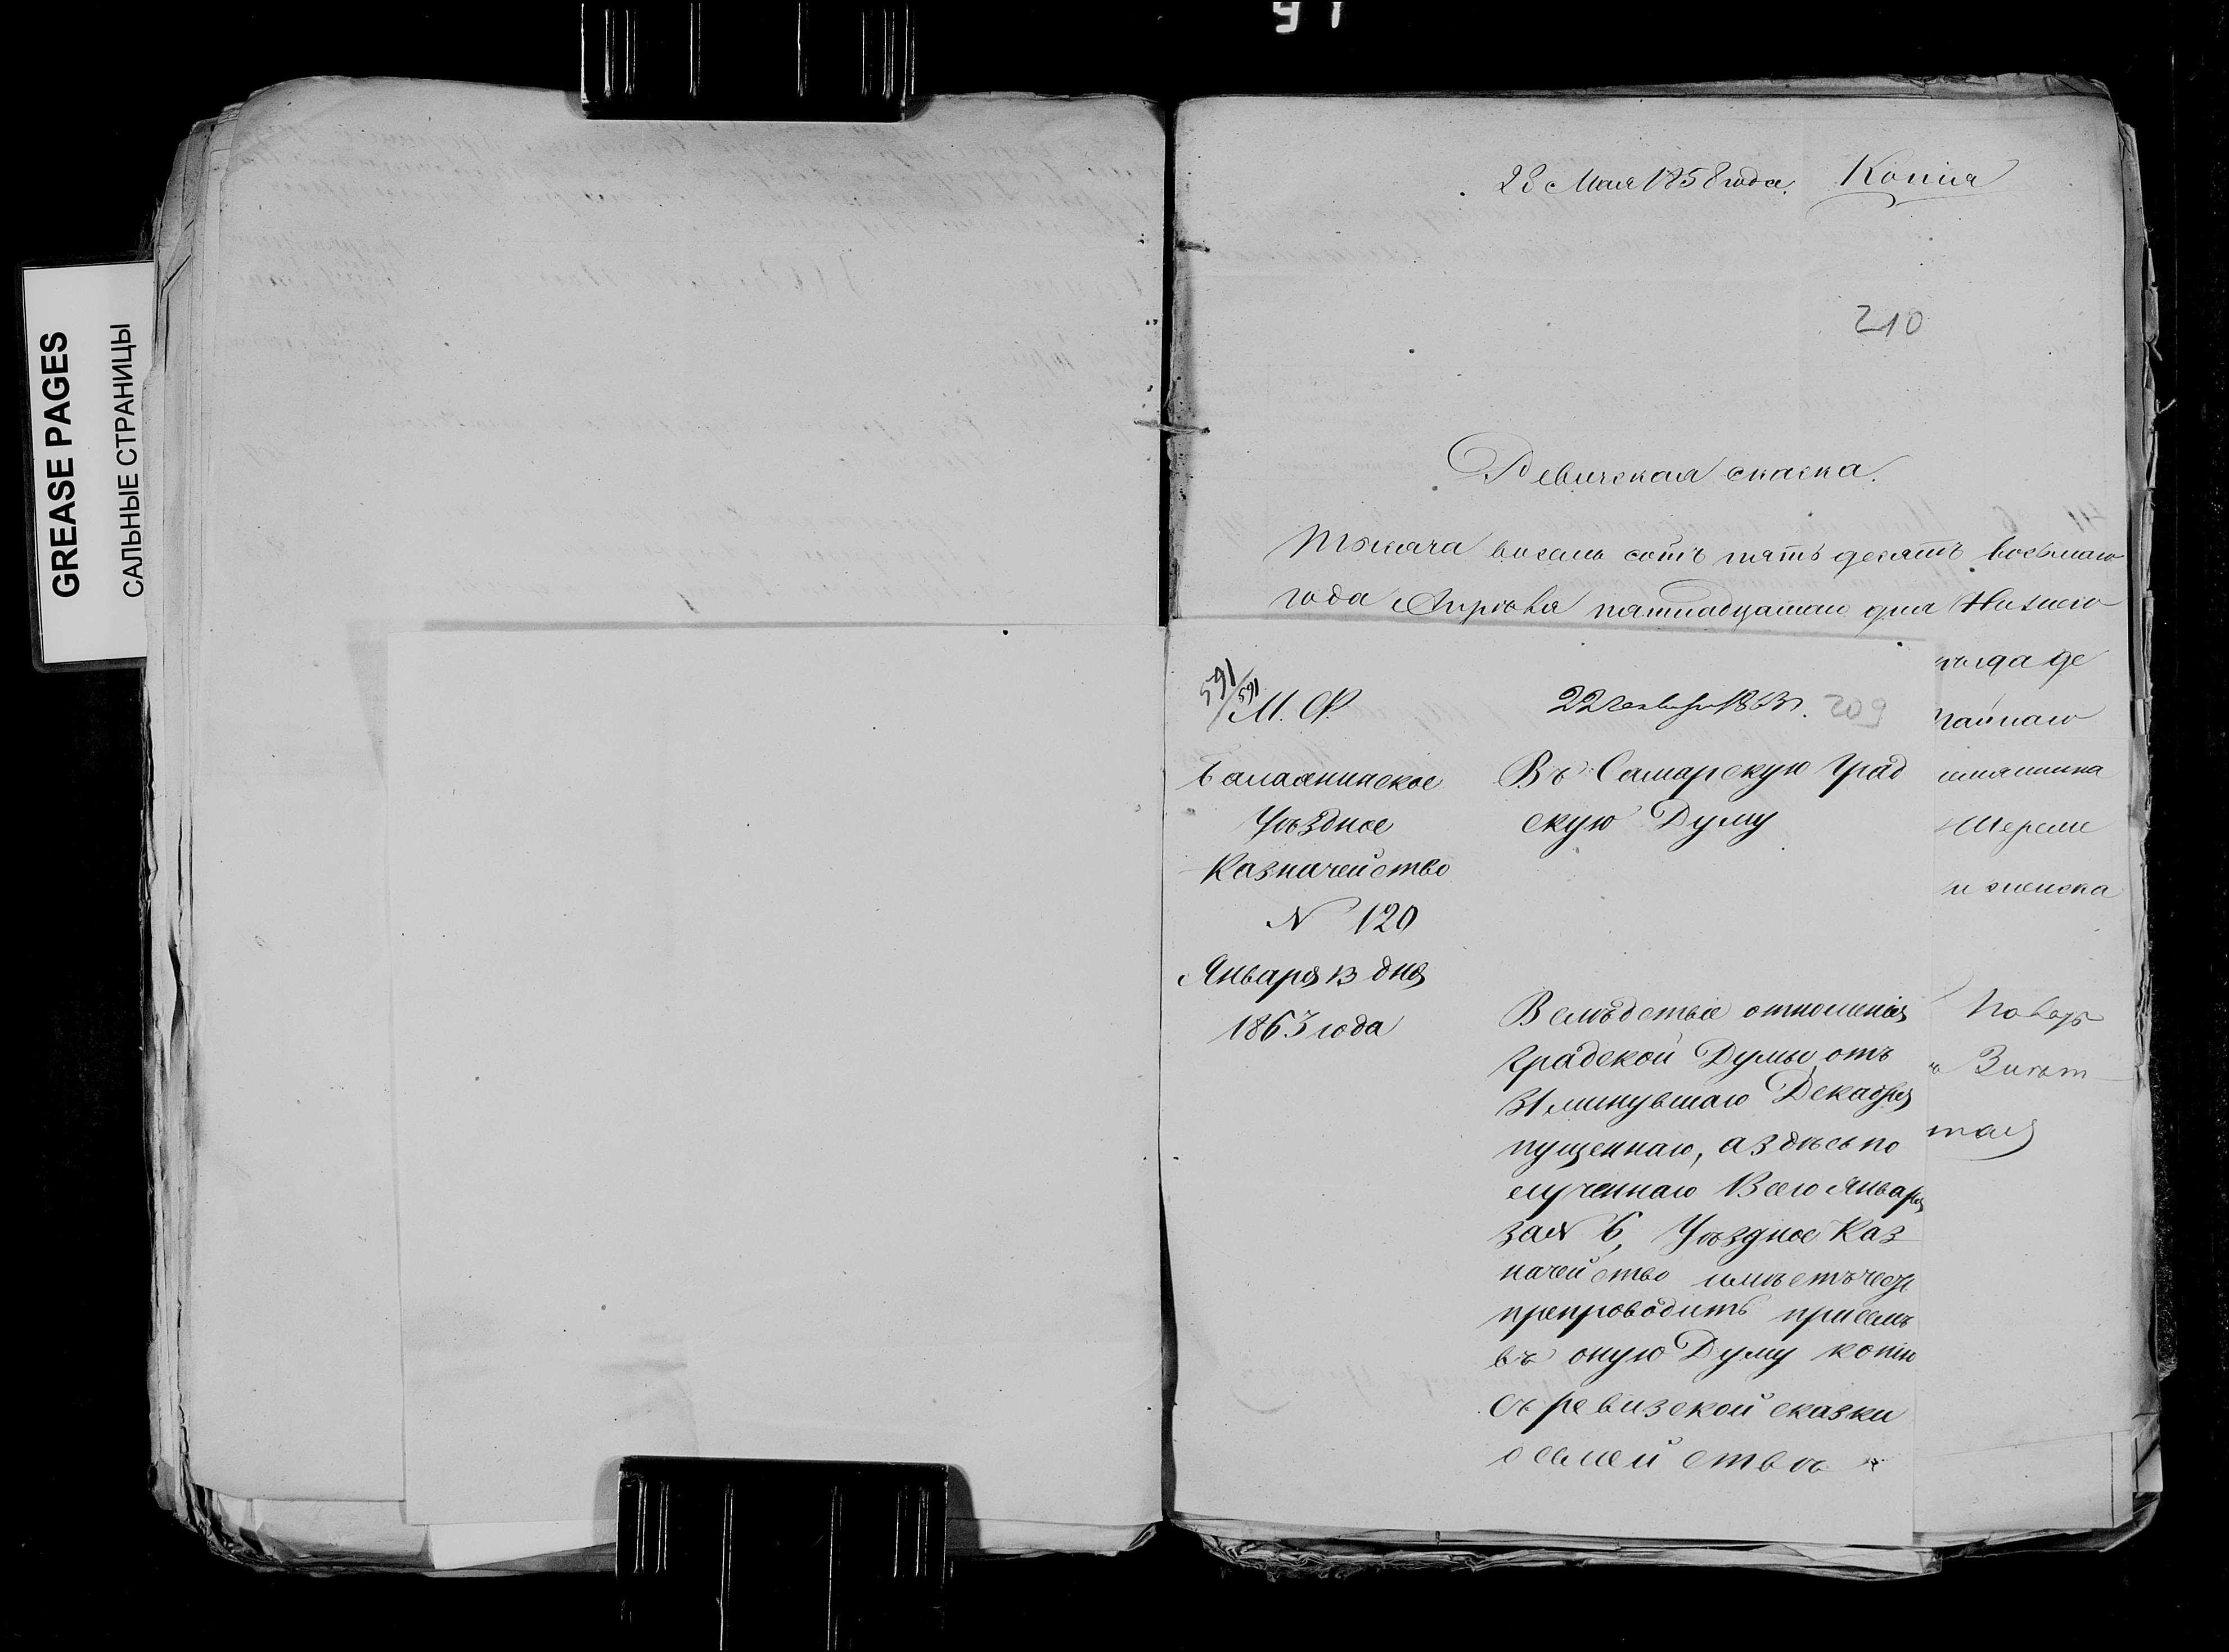 91
GREASE PAGES
САЛЬНЫЕ СТРАНИЦЫ
28 Мая 1858 года. Копія
210
Ревичская скаска.
Тысяча восемь сотъ пять десятъ восьмаго
года Апрѣля пятнадцатаго дня Низшего
уѣзда де
чайнаго
Шереме
и женска
Повѣр
тая
591/591
М. Ф.
Балахнинское
Уѣздное
Казначейство
N 120
Января 13 дня
1863 года
22 Января 1863 г. 209
Въ Самарскую Град
скую Думу
Вслѣдствіе отношенія
Градской Думы, отъ
31 минувшаго Декабря
пущеннаго, а здѣсь по
лученнаго 13 сего Января
за N 6, Уѣздное Каз
начейство имѣетъ честь
препроводить при семъ
въ оную Думу копію
съ ревизской сказки
о семействѣ